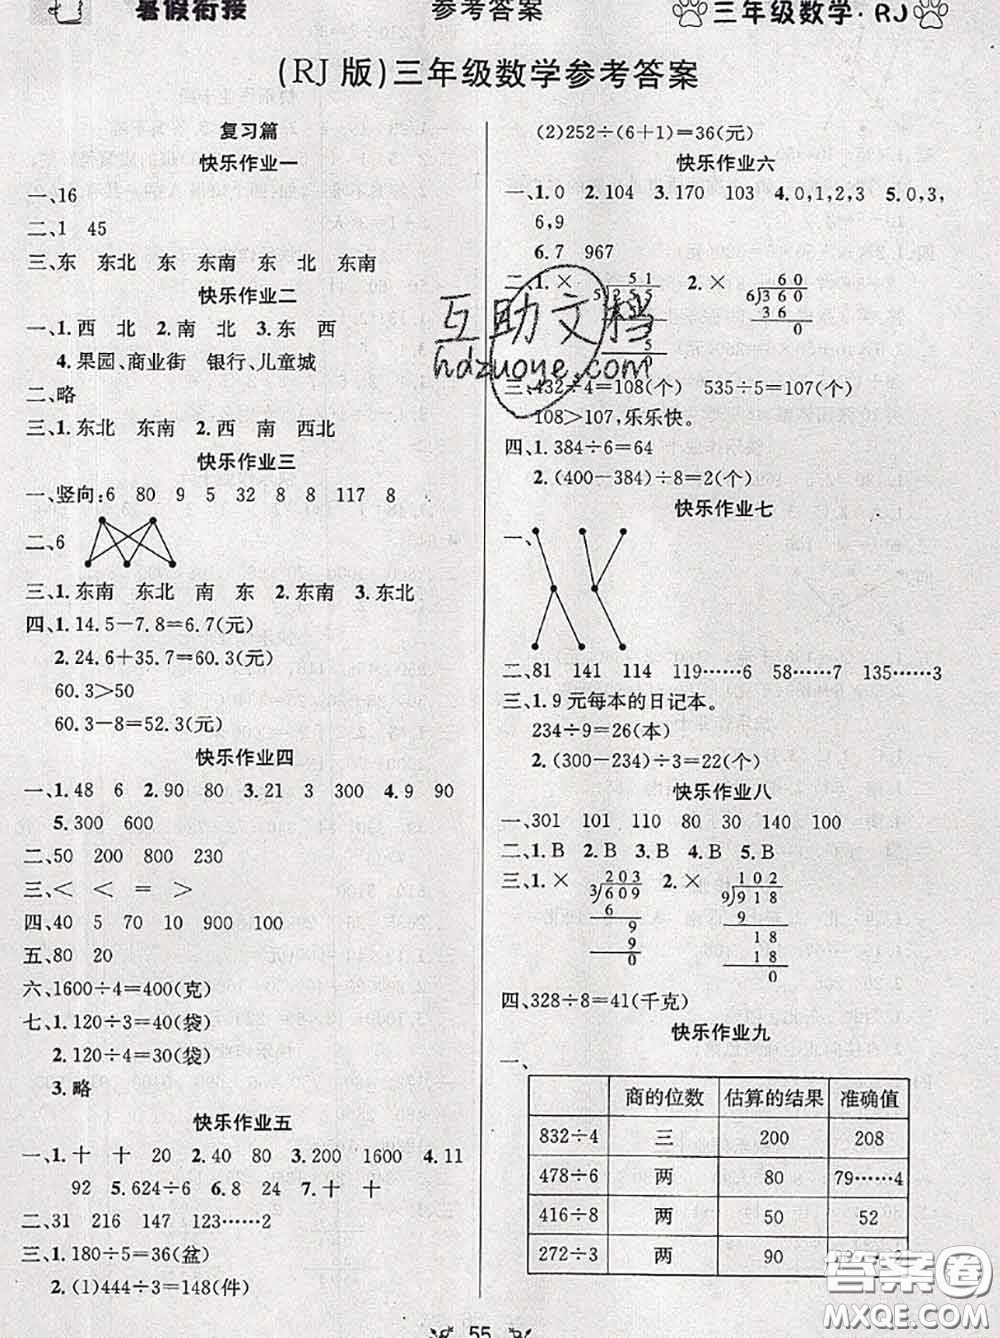 暑假衔接 参考答案 三年级数学·RJ
(RJ 版)三年级数学参考答案
复习篇
快乐作业一
一、16
二、1 45
三、东 东北 东 东南 东 北 东南
快乐作业二
一、1.西 北 2.南 北 3.东 西
4.果园、商业街 银行、儿童城
二、略
三、1.东北 东南 2.西 南 西北
快乐作业三
一、竖向:6 80 9 5 32 8 8 117 8
二、6
三、1.东南 东北 南 东 2.东南 3.东北
四、1.14.5-7.8=6.7(元)
2.24.6+35.7=60.3(元)
60.3>50
60.3-8=52.3(元)
快乐作业四
一、1.48 6 2.90 80 3.21 3 300 4.9 90
5.300 600
二、50 200 800 230
三、< < = >
四、40 5 70 10 900 100
五、80 20
六、1600÷4=400(克)
七、1.120÷3=40(袋)
2.120÷4=30(袋)
3.略
快乐作业五
一、1.十 十 20 2.40 80 3.200 1600 4.11
92 5.624÷6 6.8 24 7.十 十
二、31 216 147 123……2
三、1.180÷5=36(盆)
2.(1)444÷3=148(件)
(2)252÷(6+1)=36(元)
快乐作业六
一、1.0 2.104 3.170 103 4.0,1,2,3 5.0,3,
6,9
6.7 967
二、1.× 2.×
51
5
5
0
60
6 360
36
0
三、432÷4=108(个) 535÷5=107(个)
108>107,乐乐快。
四、1.384÷6=64
2.(400-384)÷8=2(个)
快乐作业七
一、
二、81 141 114 119……6 58……7 135……3
三、1.9元每本的日记本。
234÷9=26(本)
2.(300-234)÷3=22(个)
快乐作业八
一、301 101 110 80 30 140 100
二、1.B 2.B 3.B 4.B 5.B
三、1.× 2.×
203
3 609
6
9
9
0
102
9 918
9
18
18
0
四、328÷8=41(千克)
快乐作业九
一、
商的位数 估算的结果 准确值
832÷4 三 200 208
478÷6 两 80 79……4
416÷8 两 50 52
272÷3 两 90
55
互助文档
hdzuoye.com
答案圈
MXQE.COM